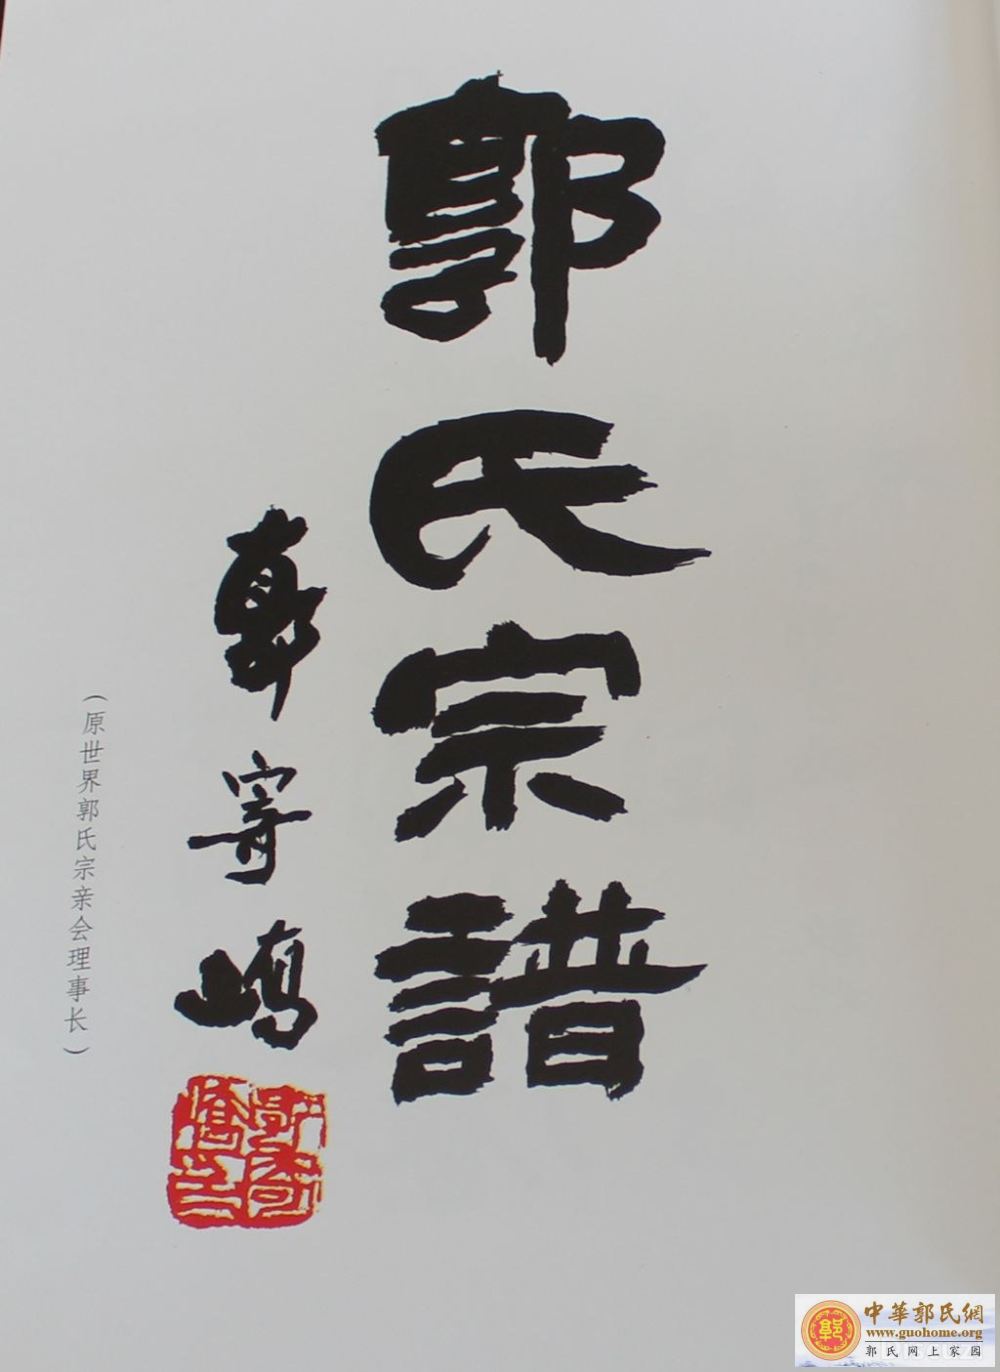 郭氏宗譜
郭寄嶠
(原世界郭氏宗亲会理事长)
中華郭氏網
www.guohome.org
郭氏网上家园